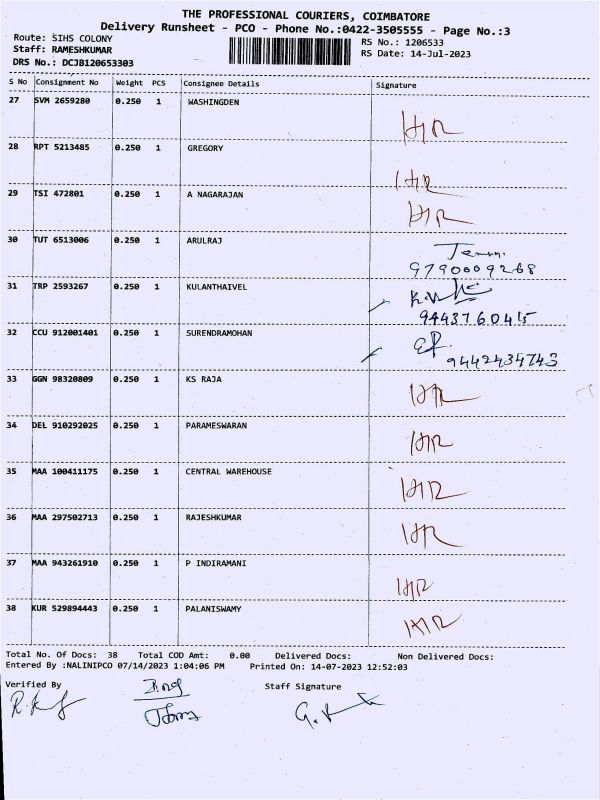 THE PROFESSIONAL COURIERS, COIMBATORE
Delivery Runsheet - PCO - Phone No.:0422-3505555 - Page No.:3
Route: SIHS COLONY RS No.: 1206533
Staff: RAMESHKUMAR RS Date: 14-Jul-2023
DRS No.: DCJB120653303
S No Consignment No Weight PCS Consignee Details Signature
27 SVM 2659280 0.250 1 WASHINGDEN
28 RPT 5213485 0.250 1 GREGORY
29 TSI 472801 0.250 1 A NAGARAJAN
30 TUT 6513006 0.250 1 ARULRAJ
9790009268
31 TRP 2593267 0.250 1 KULANTHAIVEL
9443760415
32 CCU 912001401 0.250 1 SURENDRAMOHAN
9442434743
33 GGN 98320809 0.250 1 KS RAJA
34 DEL 910292025 0.250 1 PARAMESWARAN
35 MAA 100411175 0.250 1 CENTRAL WAREHOUSE
36 MAA 297502713 0.250 1 RAJESHKUMAR
37 MAA 943261910 0.250 1 P INDIRAMANI
38 KUR 529894443 0.250 1 PALANISWAMY
Total No. Of Docs: 38 Total COD Amt: 0.00 Delivered Docs: Non Delivered Docs:
Entered By :NALINIPCO 07/14/2023 1:04:06 PM Printed On: 14-07-2023 12:52:03
Verified By Staff Signature